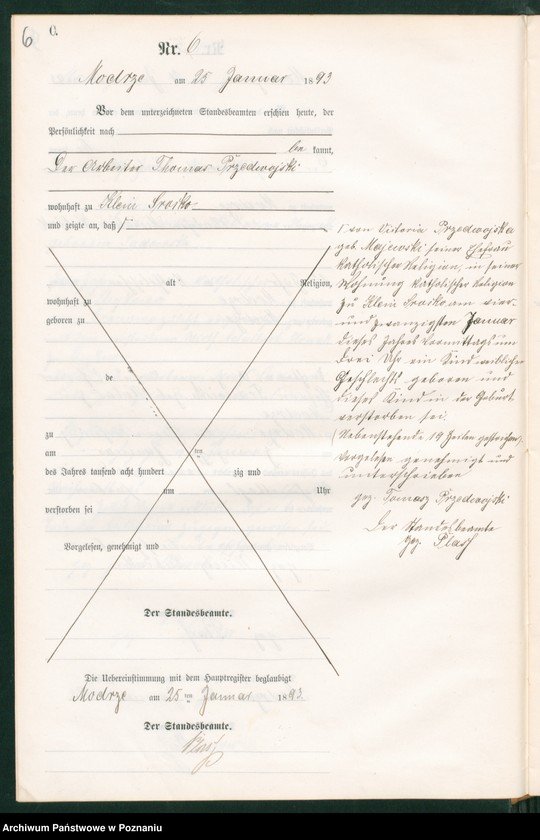 6
C.
Nr. 6
Modrze am 25 Januar 1893
Vor dem unterzeichneten Standesbeamten erschien heute, der
Persönlichkeit nach
be kannt,
Der Arbeiter Thomas Przedwojski
wohnhaft zu Klein Sroiko
und zeigte an, daß
alt Religion,
wohnhaft zu
geboren zu
de
zu
am ten
des Jahres tausend acht hundert zig und
um Uhr
verstorben sei
Vorgelesen, genehmigt und
Der Standesbeamte.
Die Uebereinstimmung mit dem Hauptregister beglaubigt
Modrze am 25 ten Januar 1892
Der Standesbeamte.
Plass
von Victoria Przedwojska
geb. Majewski seiner Ehefrau
katholischer Religion, in seiner
Wohnung katholischer Religion
zu Klein Sroiko am vier-
und zwanzigsten Januar
dieses Jahres Vormittags um
drei Uhr ein Kind weiblichen
Geschlechts geboren und
dieses Kind in der Geburt
verstorben sei.
(Nebenstehende 19 Zeilen gestrichen)
Vorgelesen genehmigt und
unterschrieben
gez. Tomasz Przedwojski
Der Standesbeamte
gez. Plass
Archiwum Państwowe w Poznaniu